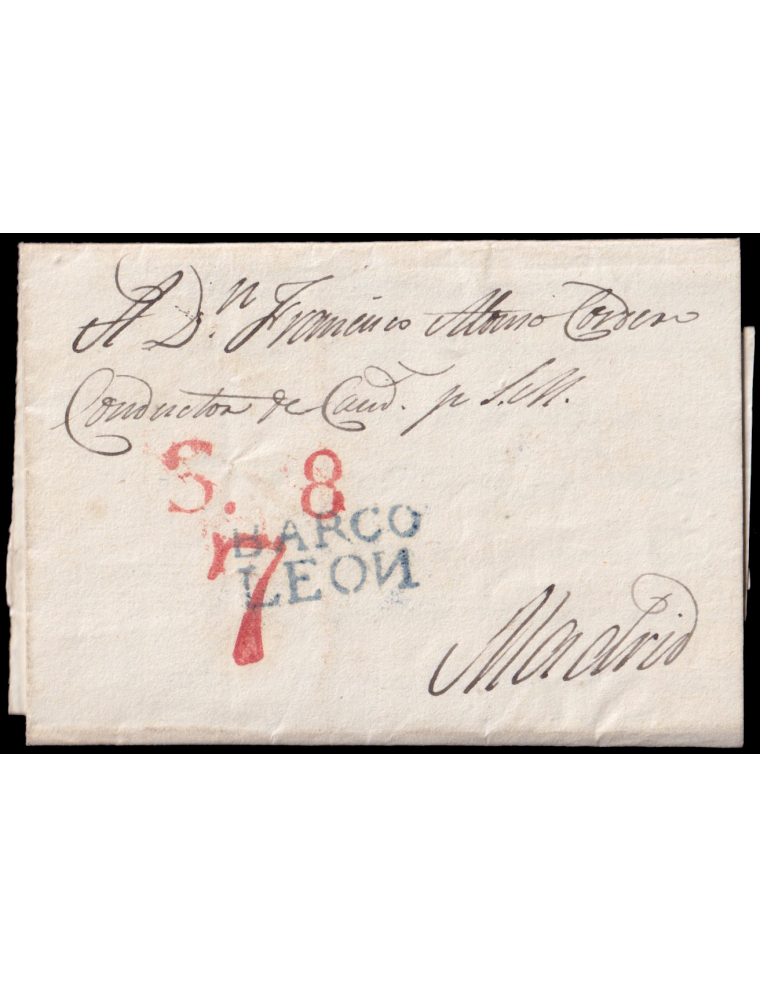 A Dn. Francisco Alonso Cordero
Conductor de Caud. p S.M.
S. 8
BARCO
7
LEON
Madrid